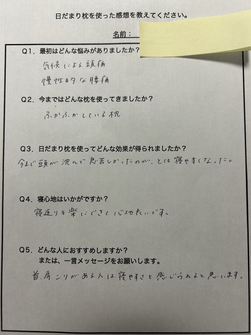 日だまり枕を使った感想を教えてください。
名前：
Q1、最初はどんな悩みがありましたか？
気候による頭痛
慢性的な腰痛
Q2、今まではどんな枕を使ってきましたか？
ふかふかしている枕
Q3、日だまり枕を使ってどんな効果が得られましたか？
今まで頭が沈んで息苦しかったのが、とても寝やすくなった。
Q4、寝心地はいかがですか？
寝返りも楽にできて心地良いです。
Q5、どんな人におすすめしますか？
または、一言メッセージをお願いします。
首、肩こりがある人は寝やすさを感じられると思います。